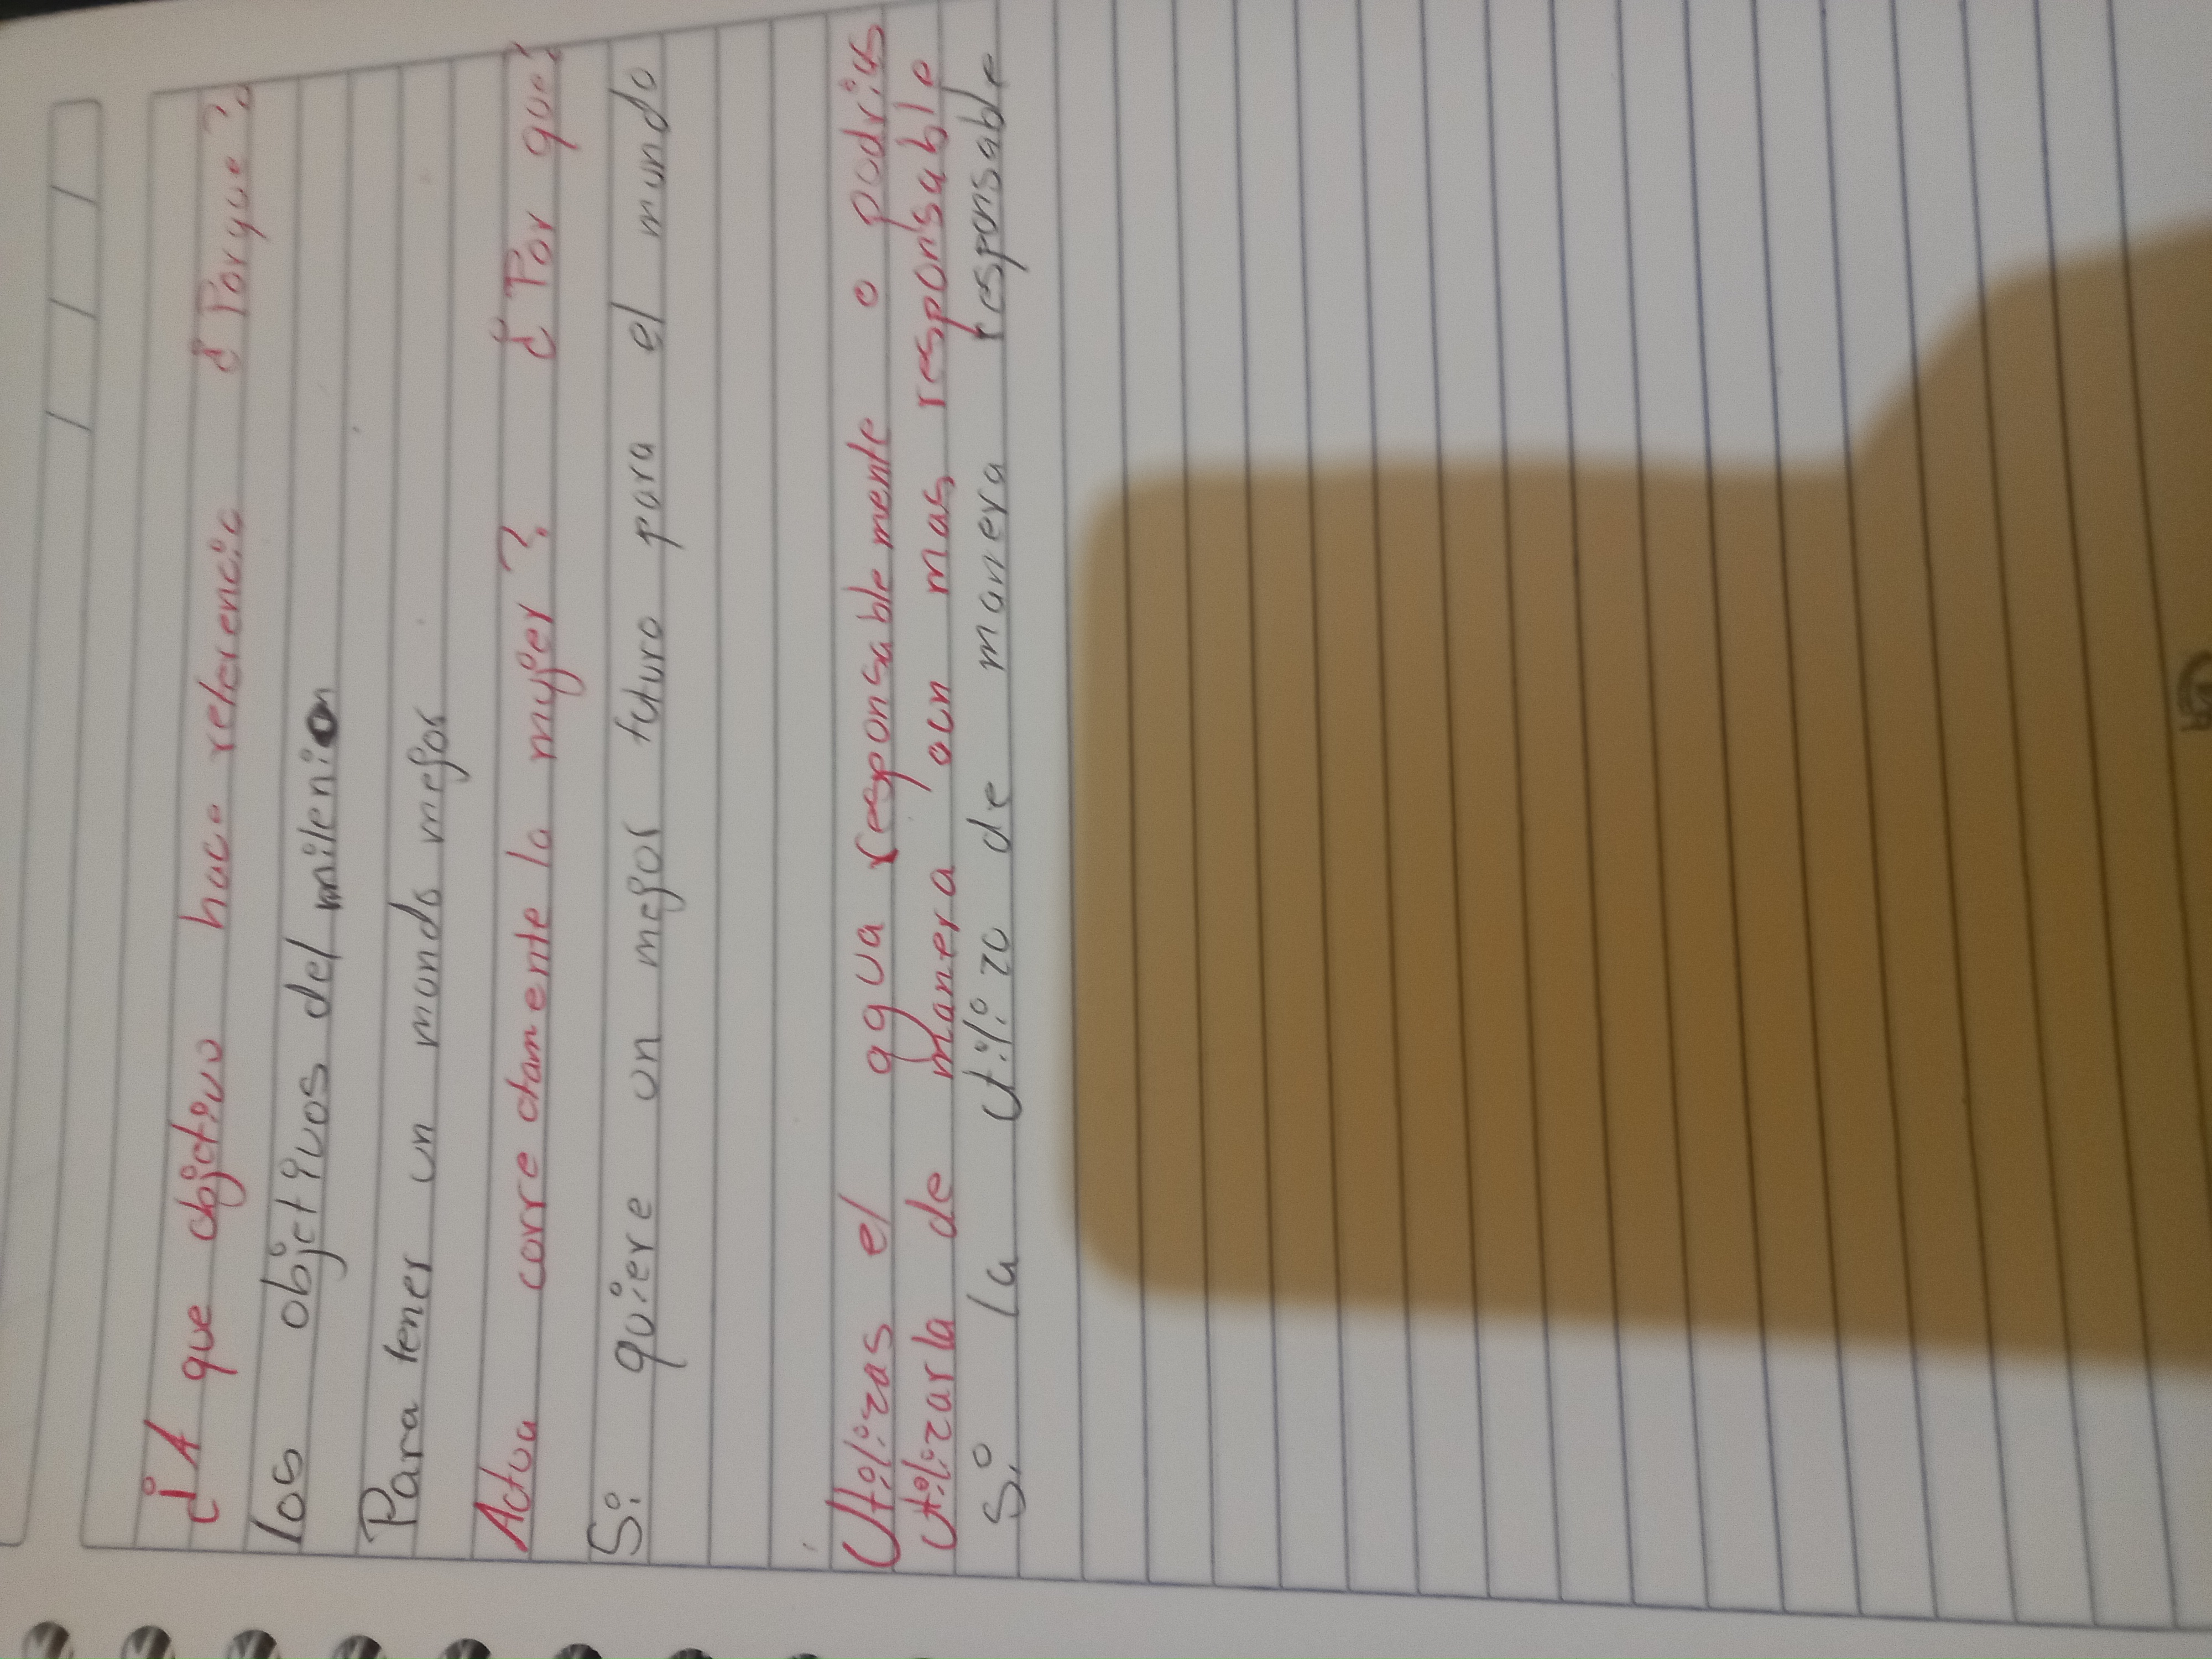 ¿A que objctivo hace referencia ¿Porque?
los objctivos del milenio
Para tener un mundo mejor
Actua correctamente la mujer? ¿Por que?
Si quiere un mejor futuro para el mundo
Utilizas el agua responsablemente o podrias
utilizarla de manera aun mas responsable
Si la utilizo de manera responsable